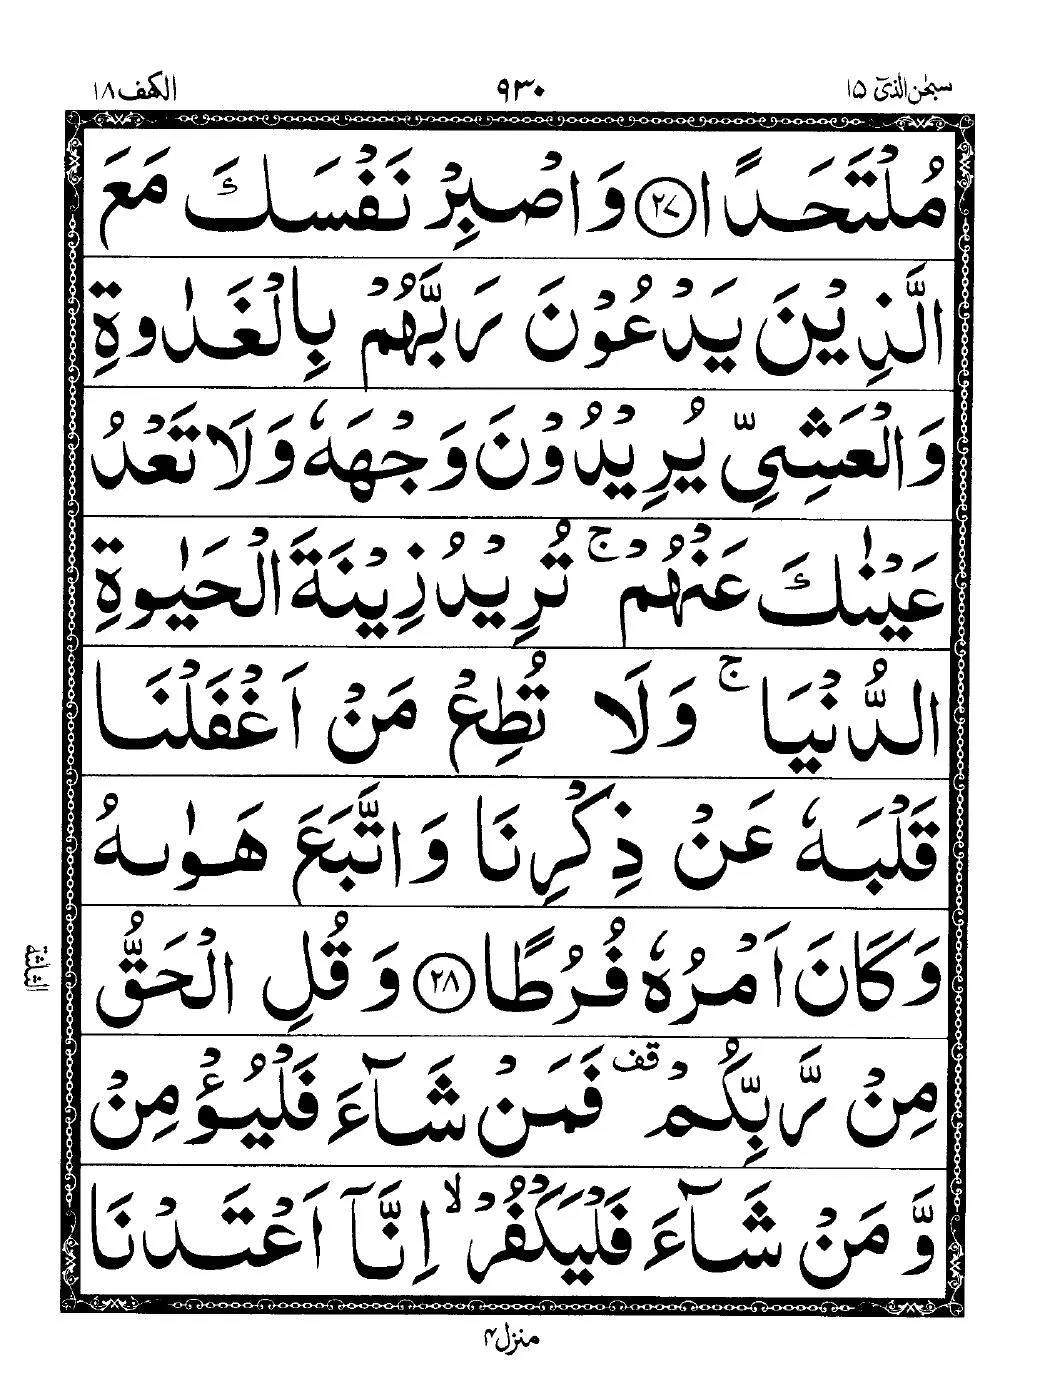 سبحٰن الذیٓ ۱۵
۹۳۰
الکهف ۱۸
مُلْتَحَدًا ﴿۲۷﴾ وَاصْبِرْ نَفْسَكَ مَعَ
الَّذِيْنَ يَدْعُوْنَ رَبَّهُمْ بِالْغَدٰوةِ
وَالْعَشِيِّ يُرِيْدُوْنَ وَجْهَهٗ وَلَا تَعْدُ
عَيْنٰكَ عَنْهُمْ ۚ تُرِيْدُ زِيْنَةَ الْحَيٰوةِ
الدُّنْيَا ۚ وَلَا تُطِعْ مَنْ اَغْفَلْنَا
قَلْبَهٗ عَنْ ذِكْرِنَا وَاتَّبَعَ هَوٰىهُ
وَكَانَ اَمْرُهٗ فُرُطًا ﴿۲۸﴾ وَقُلِ الْحَقُّ
مِنْ رَّبِّكُمْ قف فَمَنْ شَآءَ فَلْيُؤْمِنْ
وَّمَنْ شَآءَ فَلْيَكْفُرْ ۙ اِنَّآ اَعْتَدْنَا
الثلثة
منزل ۴